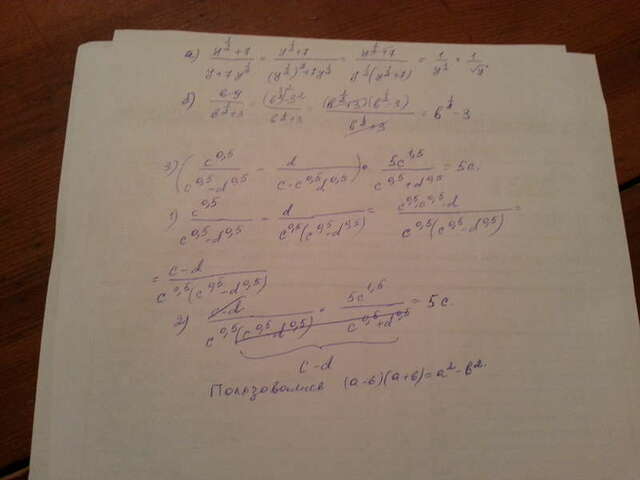 а) (y^(1/2)+7)/(y+7y^(1/2)) = (y^(1/2)+7)/((y^(1/2))^2+7y^(1/2)) = (y^(1/2)+7)/(y^(1/2)(y^(1/2)+7)) = 1/y^(1/2) = 1/√y.
б) (в-9)/(в^(1/2)+3) = (в^(1/2))^2-3^2/(в^(1/2)+3) = (в^(1/2)+3)(в^(1/2)-3)/(в^(1/2)+3) = в^(1/2)-3
3) (c^0,5/(c^0,5-d^0,5) - d/(c-c^0,5d^0,5)) · 5c^1,5/(c^0,5+d^0,5) = 5c.
1) c^0,5/(c^0,5-d^0,5) - d/(c^0,5(c^0,5-d^0,5)) = (c^0,5·c^0,5-d)/(c^0,5(c^0,5-d^0,5)) =
= (c-d)/(c^0,5(c^0,5-d^0,5))
2) (c-d)/(c^0,5(c^0,5-d^0,5)) · 5c^1,5/(c^0,5+d^0,5) = 5c.
c-d
Пользовались (а-в)(а+в)=а^2-в^2.